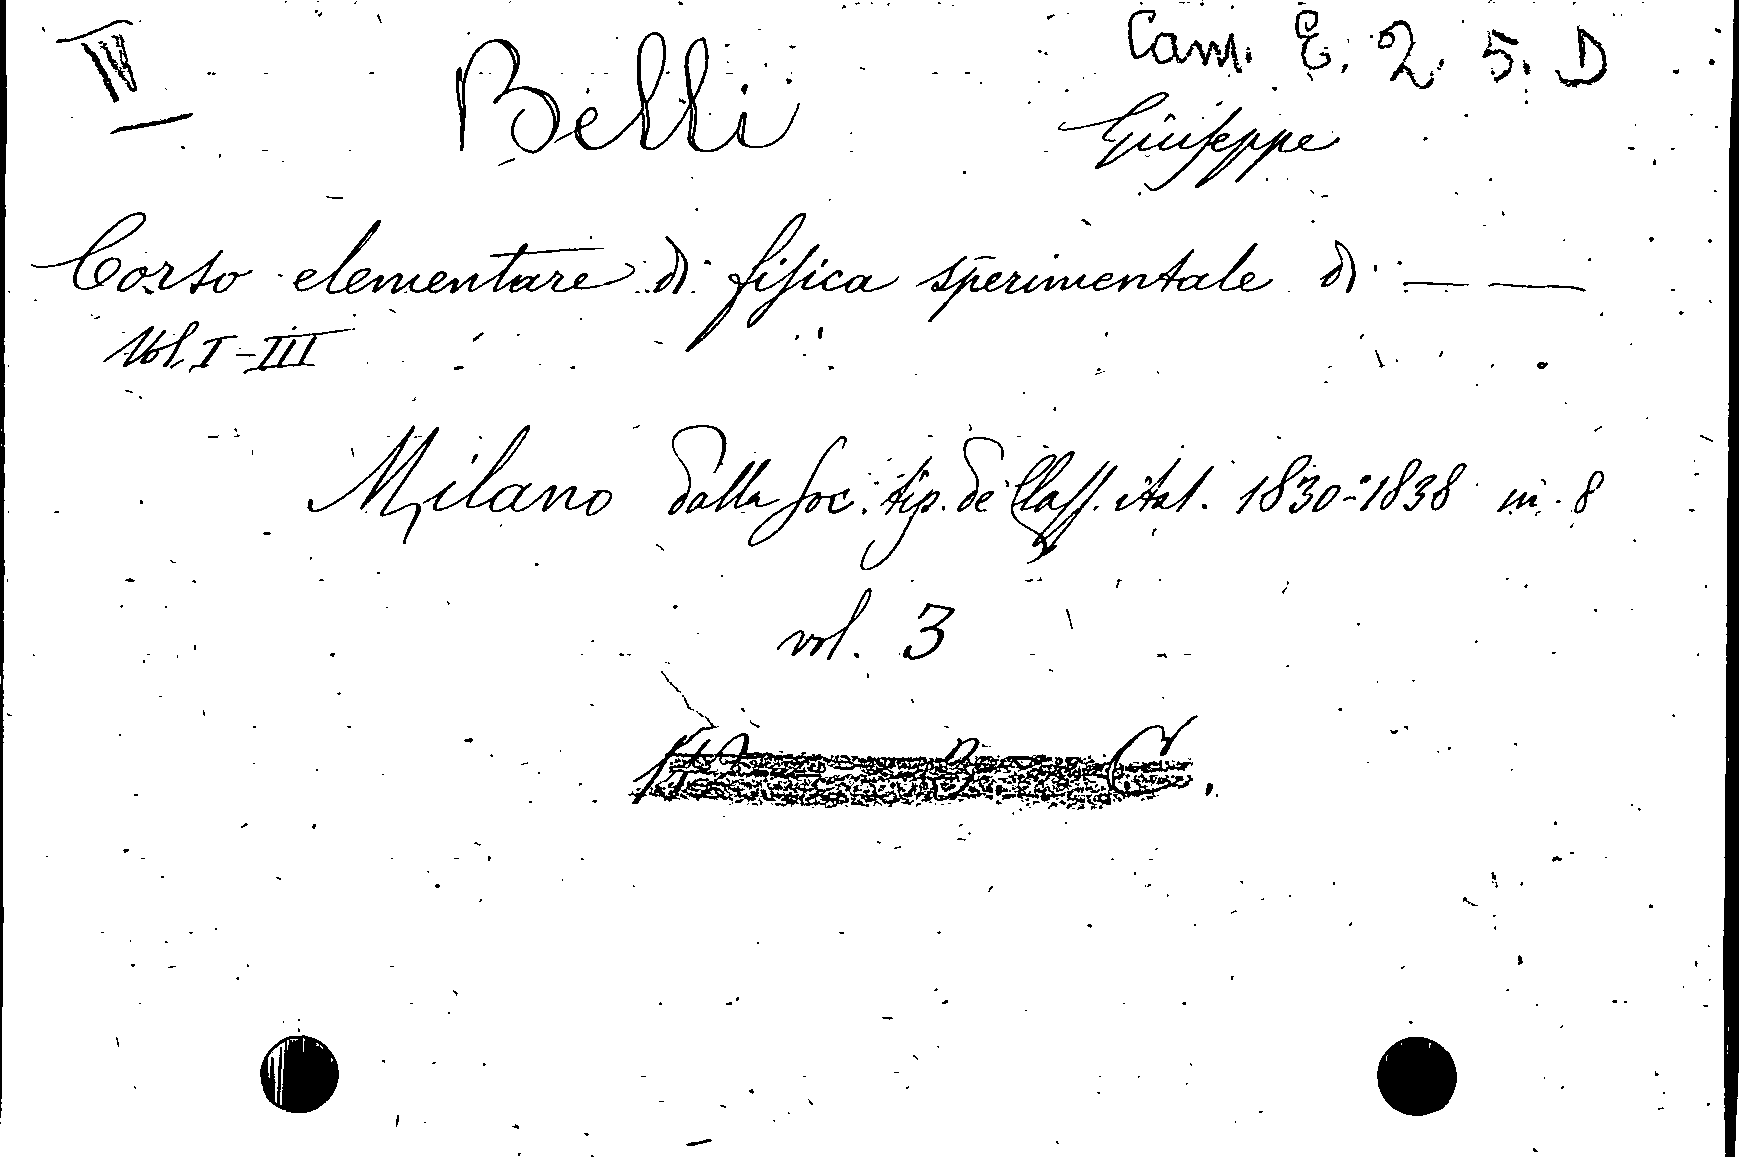 IV Cam. E. 2. 5. D
Belli Giuseppe
Corso elementare di fisica sperimentale di — —
Vol. I - III
Milano dalla Soc. tip. de' Class. ital. 1830-1838 in 8
vol. 3